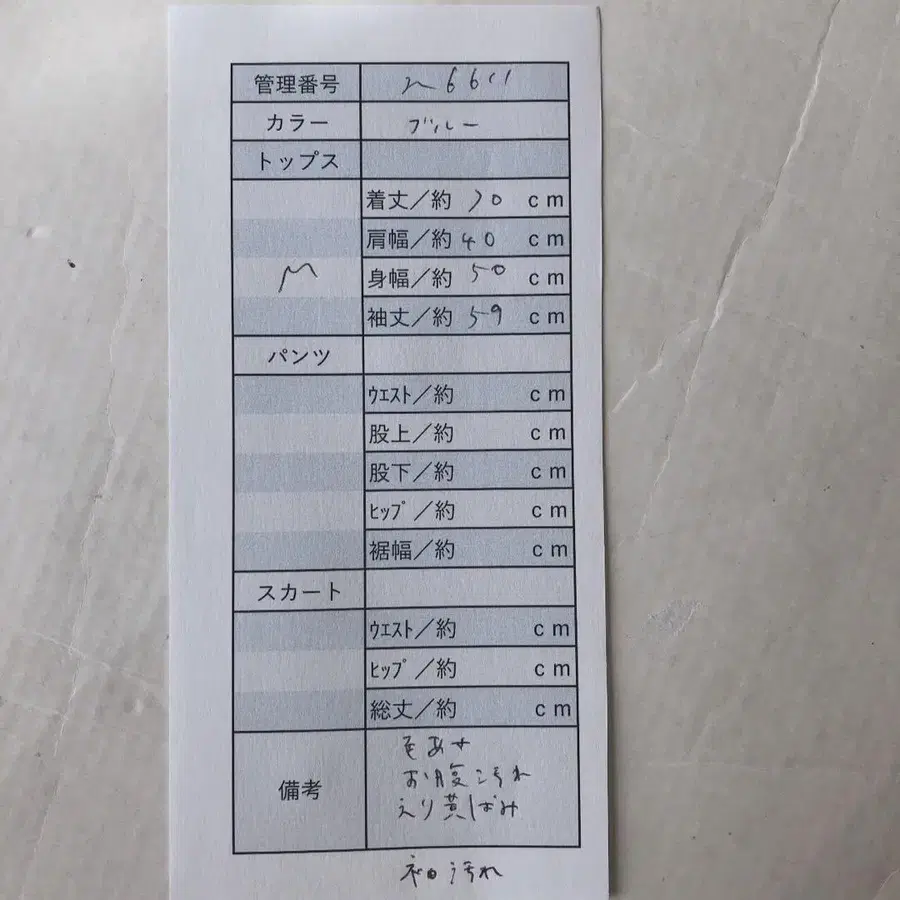 管理番号 n6611
カラー ブルー
トップス
着丈／約 70 cm
肩幅／約 40 cm
M 身幅／約 50 cm
袖丈／約 59 cm
パンツ
ｳｴｽﾄ／約 cm
股上／約 cm
股下／約 cm
ﾋｯﾌﾟ／約 cm
裾幅／約 cm
スカート
ｳｴｽﾄ／約 cm
ﾋｯﾌﾟ／約 cm
総丈／約 cm
備考
お腹汚れ
えり黄ばみ
袖汚れ